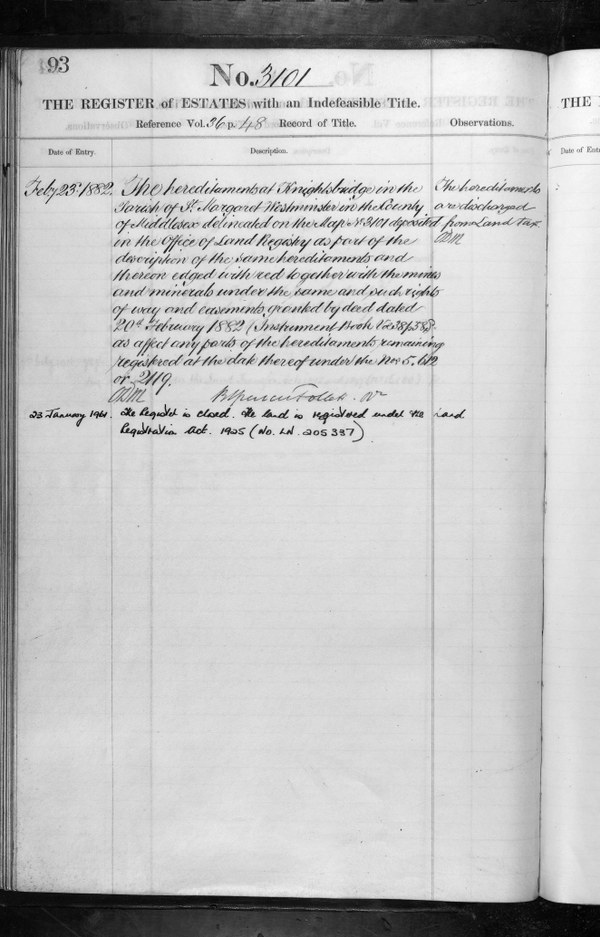 93
No. 3101
THE REGISTER of ESTATES with an Indefeasible Title.
Reference Vol. 36 p. 48 Record of Title. Observations.
Date of Entry. Description.
Feby 23rd 1882. The hereditaments at Knightsbridge in the
Parish of St. Margaret Westminster in the County
of Middlesex delineated on the Map No 3101 deposited
in the Office of Land Registry as part of the
description of the same hereditaments and
thereon edged with red together with the mines
and minerals under the same and such rights
of way and easements granted by deed dated
20th February 1882 (Instrument Book
as affect any parts of the hereditaments remaining
registered at the date thereof under the Nos 5. 612
or 2119.
The hereditaments
are discharged
from Land tax
ADM
ADM
23 January 1961. The Register is closed. The land is registered under the Land
Registration Act. 1925 (No. LN. 205337)
THE
Date of Entr